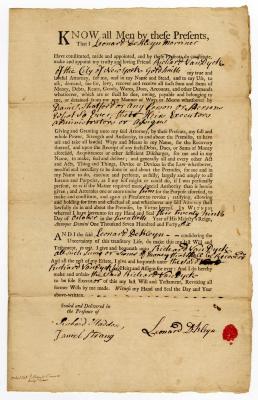 KNOW, all Men by these Presents,
That I Leonard Deklyn Marriner
Have constituted, made and appointed, and by these Presents do constitute,
make and appoint my trusty and loving Friend Richard Van Dyck
Of the City of New York Goldsmith my true and
lawful Attorney, for me, and in my Name and Stead, and to my Use, to
ask, demand, sue for, levy, recover and receive all such Sum and Sums of
Money, Debts, Rents, Goods, Wares, Dues, Accounts, and other Demands
whatsoever, which are or shall be due, owing, payable and belonging to
me, or detained from me any Manner of Ways or Means whatsoever by
Daniel or any Person or Persons
What So Ever, their Heirs Executors
Administrators or Assigns
Giving and Granting unto my said Attorney, by these Presents, my full and
whole Power, Strength and Authority, in and about the Premises, to have
and take all lawful Ways and Means in my Name, for the Recovery
thereof, and upon the Receipt of any such Debts, Dues, or Sums of Money
aforesaid, Acquittances or other sufficient Discharges, for me and in my
Name, to make, seal and deliver; and generally all and every other Act
and Acts, Thing and Things, Device or Devices in the Law whatsoever,
needful and necessary to be done in and about the Premises, for me and in
my Name to do, execute and perform, as fully, largely and amply to all
Intents and Purposes, as I my self might or could do, if I was personally
present, or as if the Matter required more special Authority than is herein
given; and Attornies one or more under him for the Purpose aforesaid, to
make and constitute, and again at Pleasure to revoke; ratifying, allowing
and holding for firm and effectual all and whatsoever my said Attorney shall
lawfully do in and about the Premises, by Virtue hereof. In Witness
whereof I have hereunto set my Hand and Seal this Twenty
Day of October in the Year of His Majesty's
Annoque Domini One Thousand Seven Hundred and Forty
AND I the said Leonard Deklyn considering the
Uncertainty of this transitory Life, do make this my last Will and
Testament, to wit, I give and bequeath unto Richard Van Dyck
all such Sums of Money
And all the rest of my Estate, I give and bequeath unto the said
Richard Van Dyck Heirs and Assigns for ever: And I do hereby
make and ordain the said Richard Van Dyck
to be sole Executor of this my last Will and Testament, Revoking all
former Wills by me made. Witness my Hand and Seal the Day and Year
above-written.
Sealed and Delivered in
the Presence of
Richard
Daniel
Leonard Deklyn